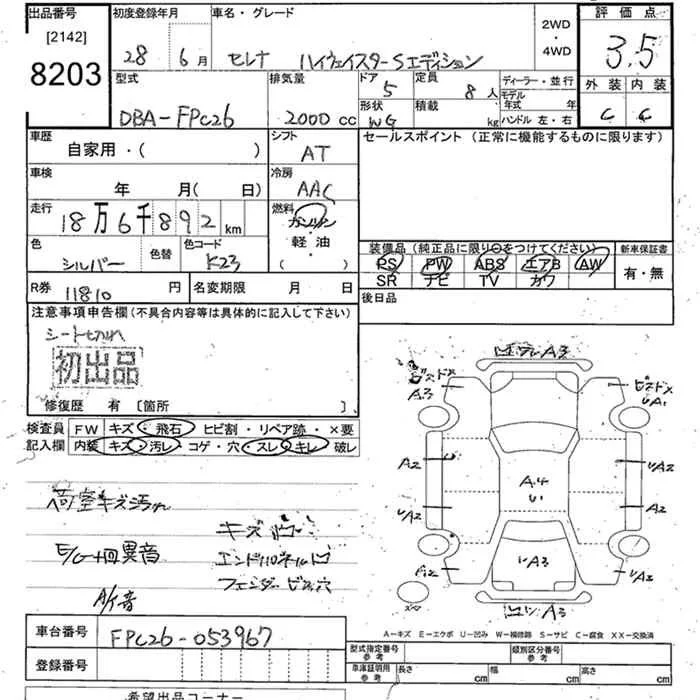 出品番号 初度登録年月 車名・グレード 2WD ・ 4WD 評価点
[2142]
8203 28 6月 セレナ ハイウェイスターSエディション 3.5
型式 排気量 ドア 5 定員 8人 ディーラー・並行 外装 内装
モデル年式 年
DBA-FPC26 2000cc 形状 WG 積載 kg ハンドル 左・右 C C
車歴 シフト セールスポイント (正常に機能するものに限ります)
自家用・( ) AT
車検 冷房
年 月( 日) AAC
走行 18万6千892km 燃料 ガソリン
軽・油
( )
色 シルバー 色替 色コード K23
装備品 (純正品に限り○をつけてください) 新車保証書
PS PW ABS エアB AW 有・無
SR ナビ TV カワ
R券 11810円 名変期限 月 日 後日品
注意事項申告欄(不具合内容等は具体的に記入して下さい)
シート切れ
初出品
修復歴 有 〔箇所 〕
検査員 FW キズ・飛石・ヒビ割・リペア跡・×要
記入欄 内装 キズ・汚レ・コゲ・穴・スレ・キレ・破レ
A3
A3
A1
A2 A2
A4
A2 A2
A2 A3 A2
A3
荷室キズ汚れ
異音
エンドパネル凹
フェンダービス穴
A-キズ E-エクボ U-凹み W-補修跡 S-サビ C-腐食 XX-交換済
車台番号 FPC26-053967
登録番号
型式指定番号 参考 類別区分番号 参考
車庫証明用 参考 長さ cm 幅 cm 高さ cm
希望出品コーナー